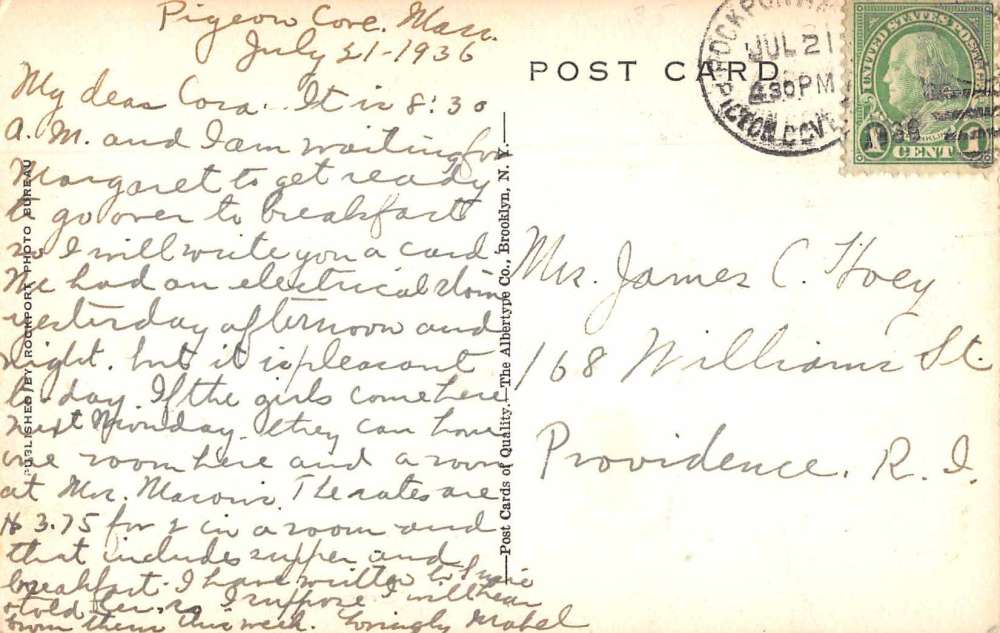 Pigeon Cove. Mass.
July 21-1936
My dear Cora. It is 8:30
A. M. and I am waiting for
Margaret to get ready
to go over to breakfast
so I will write you a card
We had an electrical storm
yesterday afternoon and
night. but it is pleasant
to-day. If the girls come here
next Monday. they can have
one room here and a room
at Mrs. The rates are
$3.75 for 2 in a room and
that includes supper and
breakfast. I have written to
& told her, so I suppose I will hear
from them this week. Lovingly Mabel
PUBLISHED BY ROCKPORT PHOTO BUREAU
—Post Cards of Quality.—The Albertype Co., Brooklyn, N. Y.—
POST CARD
ROCKPORT
JUL 21
4 30 PM
UNITED STATES POSTAGE
1 CENT 1
Mrs. James C. Hoey
168 Williams St.
Providence. R. I.